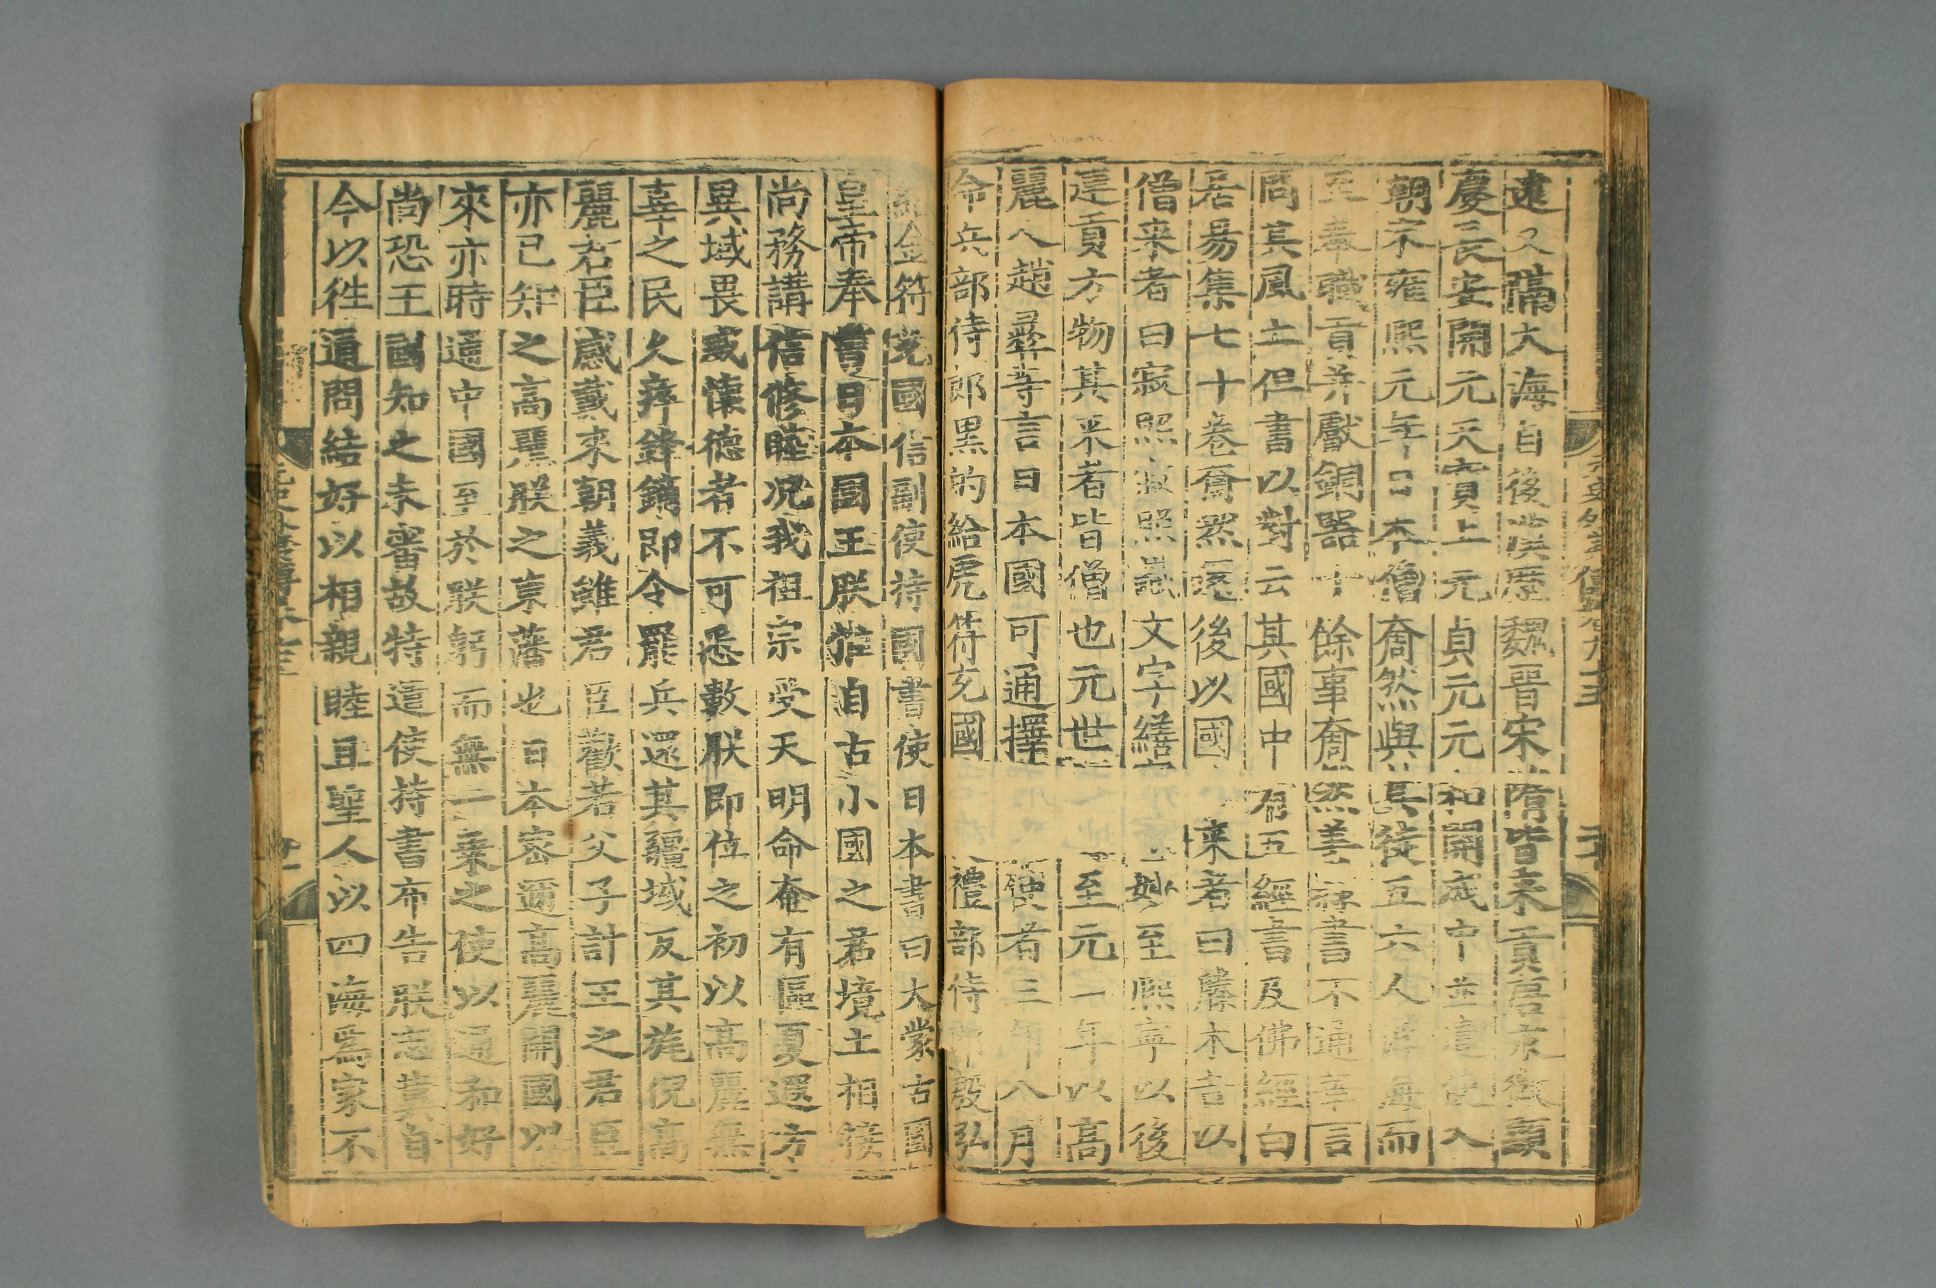 遠又隔大海自後漢歷魏晉宋隋皆來貢唐永徽顯
慶長安開元天寶上元貞元元和開成中並遣使入
朝宋雍熙元年日本僧奝然與其徒五六人浮海而
至奉職貢并獻銅器十餘事奝然善隸書不通華言
問其風土但書以對云其國中有五經書及佛經白
居易集七十卷奝然還後以國來者曰滕木吉以
僧來者曰寂照寂照識文字繕妙至熙寧以後
連貢方物其來者皆僧也元世至元二年以高
麗人趙彝等言日本國可通擇使者三年八月
命兵部侍郎黑的給虎符充國禮部侍郎殷弘
給金符充國信副使持國書使日本書曰大蒙古國
皇帝奉書日本國王朕惟自古小國之君境土相接
尚務講信修睦況我祖宗受天明命奄有區夏遐方
異域畏威懷德者不可悉數朕即位之初以高麗無
辜之民久瘁鋒鏑即令罷兵還其疆域反其旄倪高
麗君臣感戴來朝義雖君臣歡若父子計王之君臣
亦已知之高麗朕之東藩也日本密邇高麗開國以
來亦時通中國至於朕躬而無一乘之使以通和好
尚恐王國知之未審故特遣使持書布告朕志冀自
今以徃通問結好以相親睦且聖人以四海爲家不